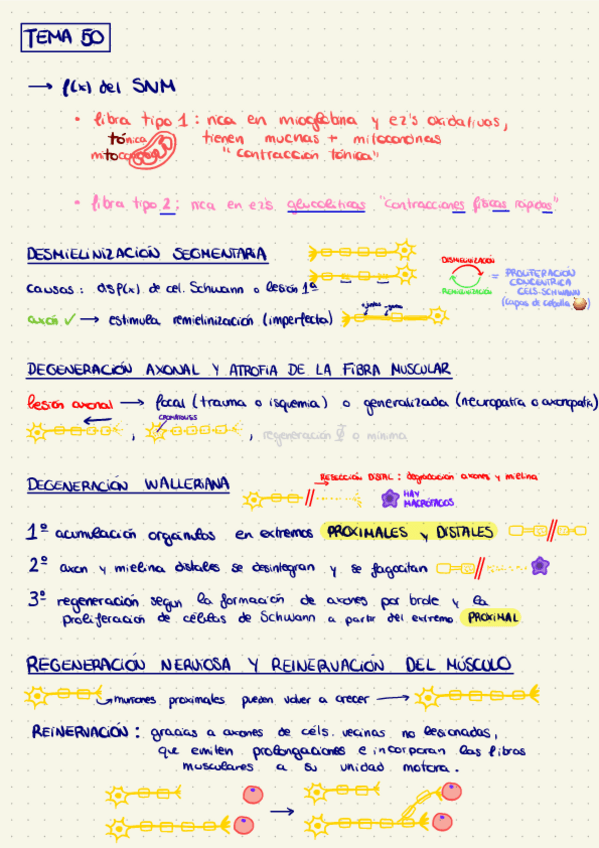 TEMA 50
→ f(x) del SNM
• fibra tipo 1: rica en mioglobina y ez's oxidativos,
tónica tienen muchas + mitocondrias
mitocondrias "contracción tónica"
• fibra tipo 2; rica en ez's. glucolíticas "contracciones físicas rápidas"
DESMIELINIZACIÓN SEGMENTARIA
causas: disf(x). de cel. Schwann o lesión 1ª
axón ✓ → estimula remielinización (imperfecta)
DISMIELINIZACIÓN
REMIELINIZACIÓN
= PROLIFERACIÓN
CONCÉNTRICA
CELS-SCHWANN
(capas de cebolla)
DEGENERACIÓN AXONAL Y ATROFIA DE LA FIBRA MUSCULAR
lesión axonal → focal (trauma o isquemia) o generalizada (neuropatía o axonopatía)
, , regeneración Φ o mínima
DEGENERACIÓN WALLERIANA
RESECCIÓN DISTAL: degradación axones y mielina
HAY
MACRÓFAGOS
1º acumulación orgánulos en extremos PROXIMALES y DISTALES
2º axon y mielina distales se desintegran y se fagocitan
3º regeneración según la formación de axones por brote y la
proliferación de células de Schwann a partir del extremo PROXIMAL
REGENERACIÓN NERVIOSA Y REINERVACIÓN DEL MÚSCULO
→ muñones proximales pueden volver a crecer →
REINERVACIÓN: gracias a axones de céls. vecinas no lesionadas,
que emiten prolongaciones e incorporan las fibras
musculares a su unidad motora.
→